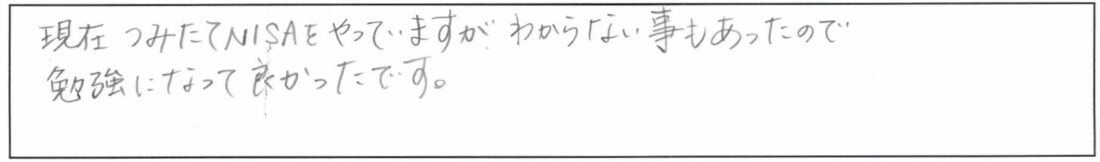 現在 つみたてNISAをやっていますが わからない事もあったので
勉強になって良かったです。